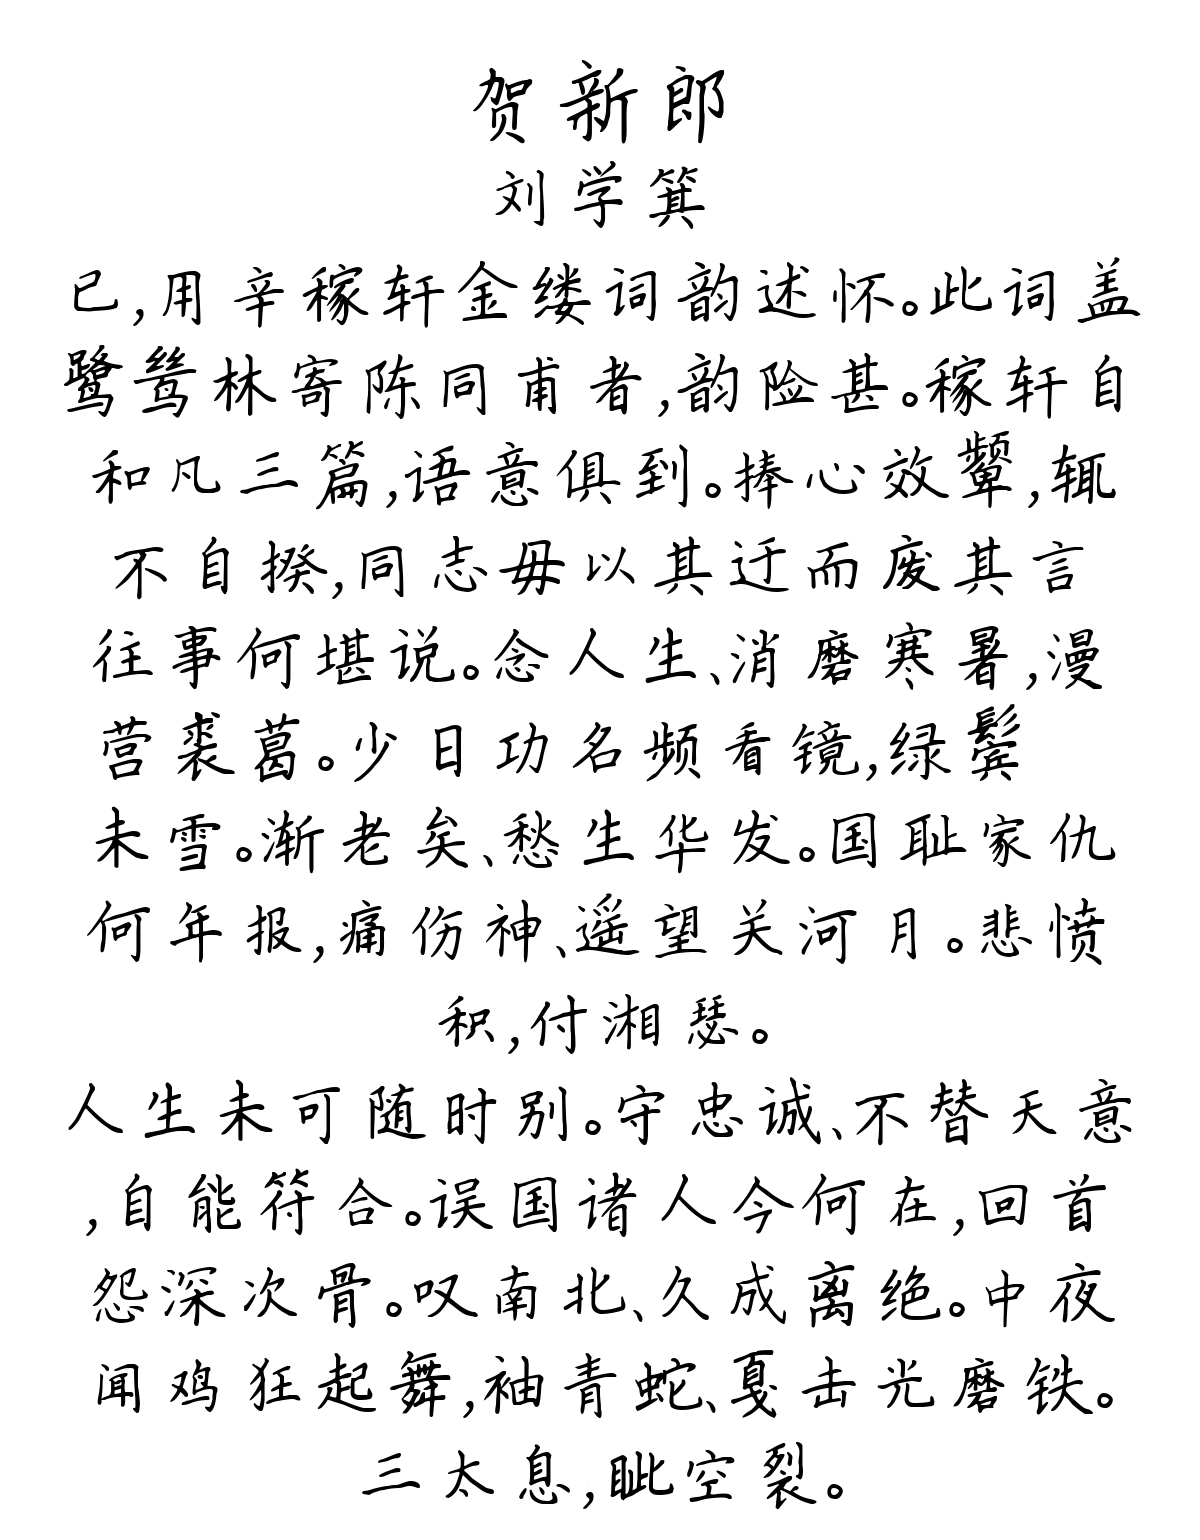 贺新郎
刘学箕
已,用辛稼轩金缕词韵述怀。此词盖
鹭鸶林寄陈同甫者,韵险甚。稼轩自
和凡三篇,语意俱到。捧心效颦,辄
不自揆,同志毋以其迂而废其言
往事何堪说。念人生、消磨寒暑,漫
营裘葛。少日功名频看镜,绿鬓
未雪。渐老矣、愁生华发。国耻家仇
何年报,痛伤神、遥望关河月。悲愤
积,付湘瑟。
人生未可随时别。守忠诚、不替天意
,自能符合。误国诸人今何在,回首
怨深次骨。叹南北、久成离绝。中夜
闻鸡狂起舞,袖青蛇、戛击光磨铁。
三太息,眦空裂。